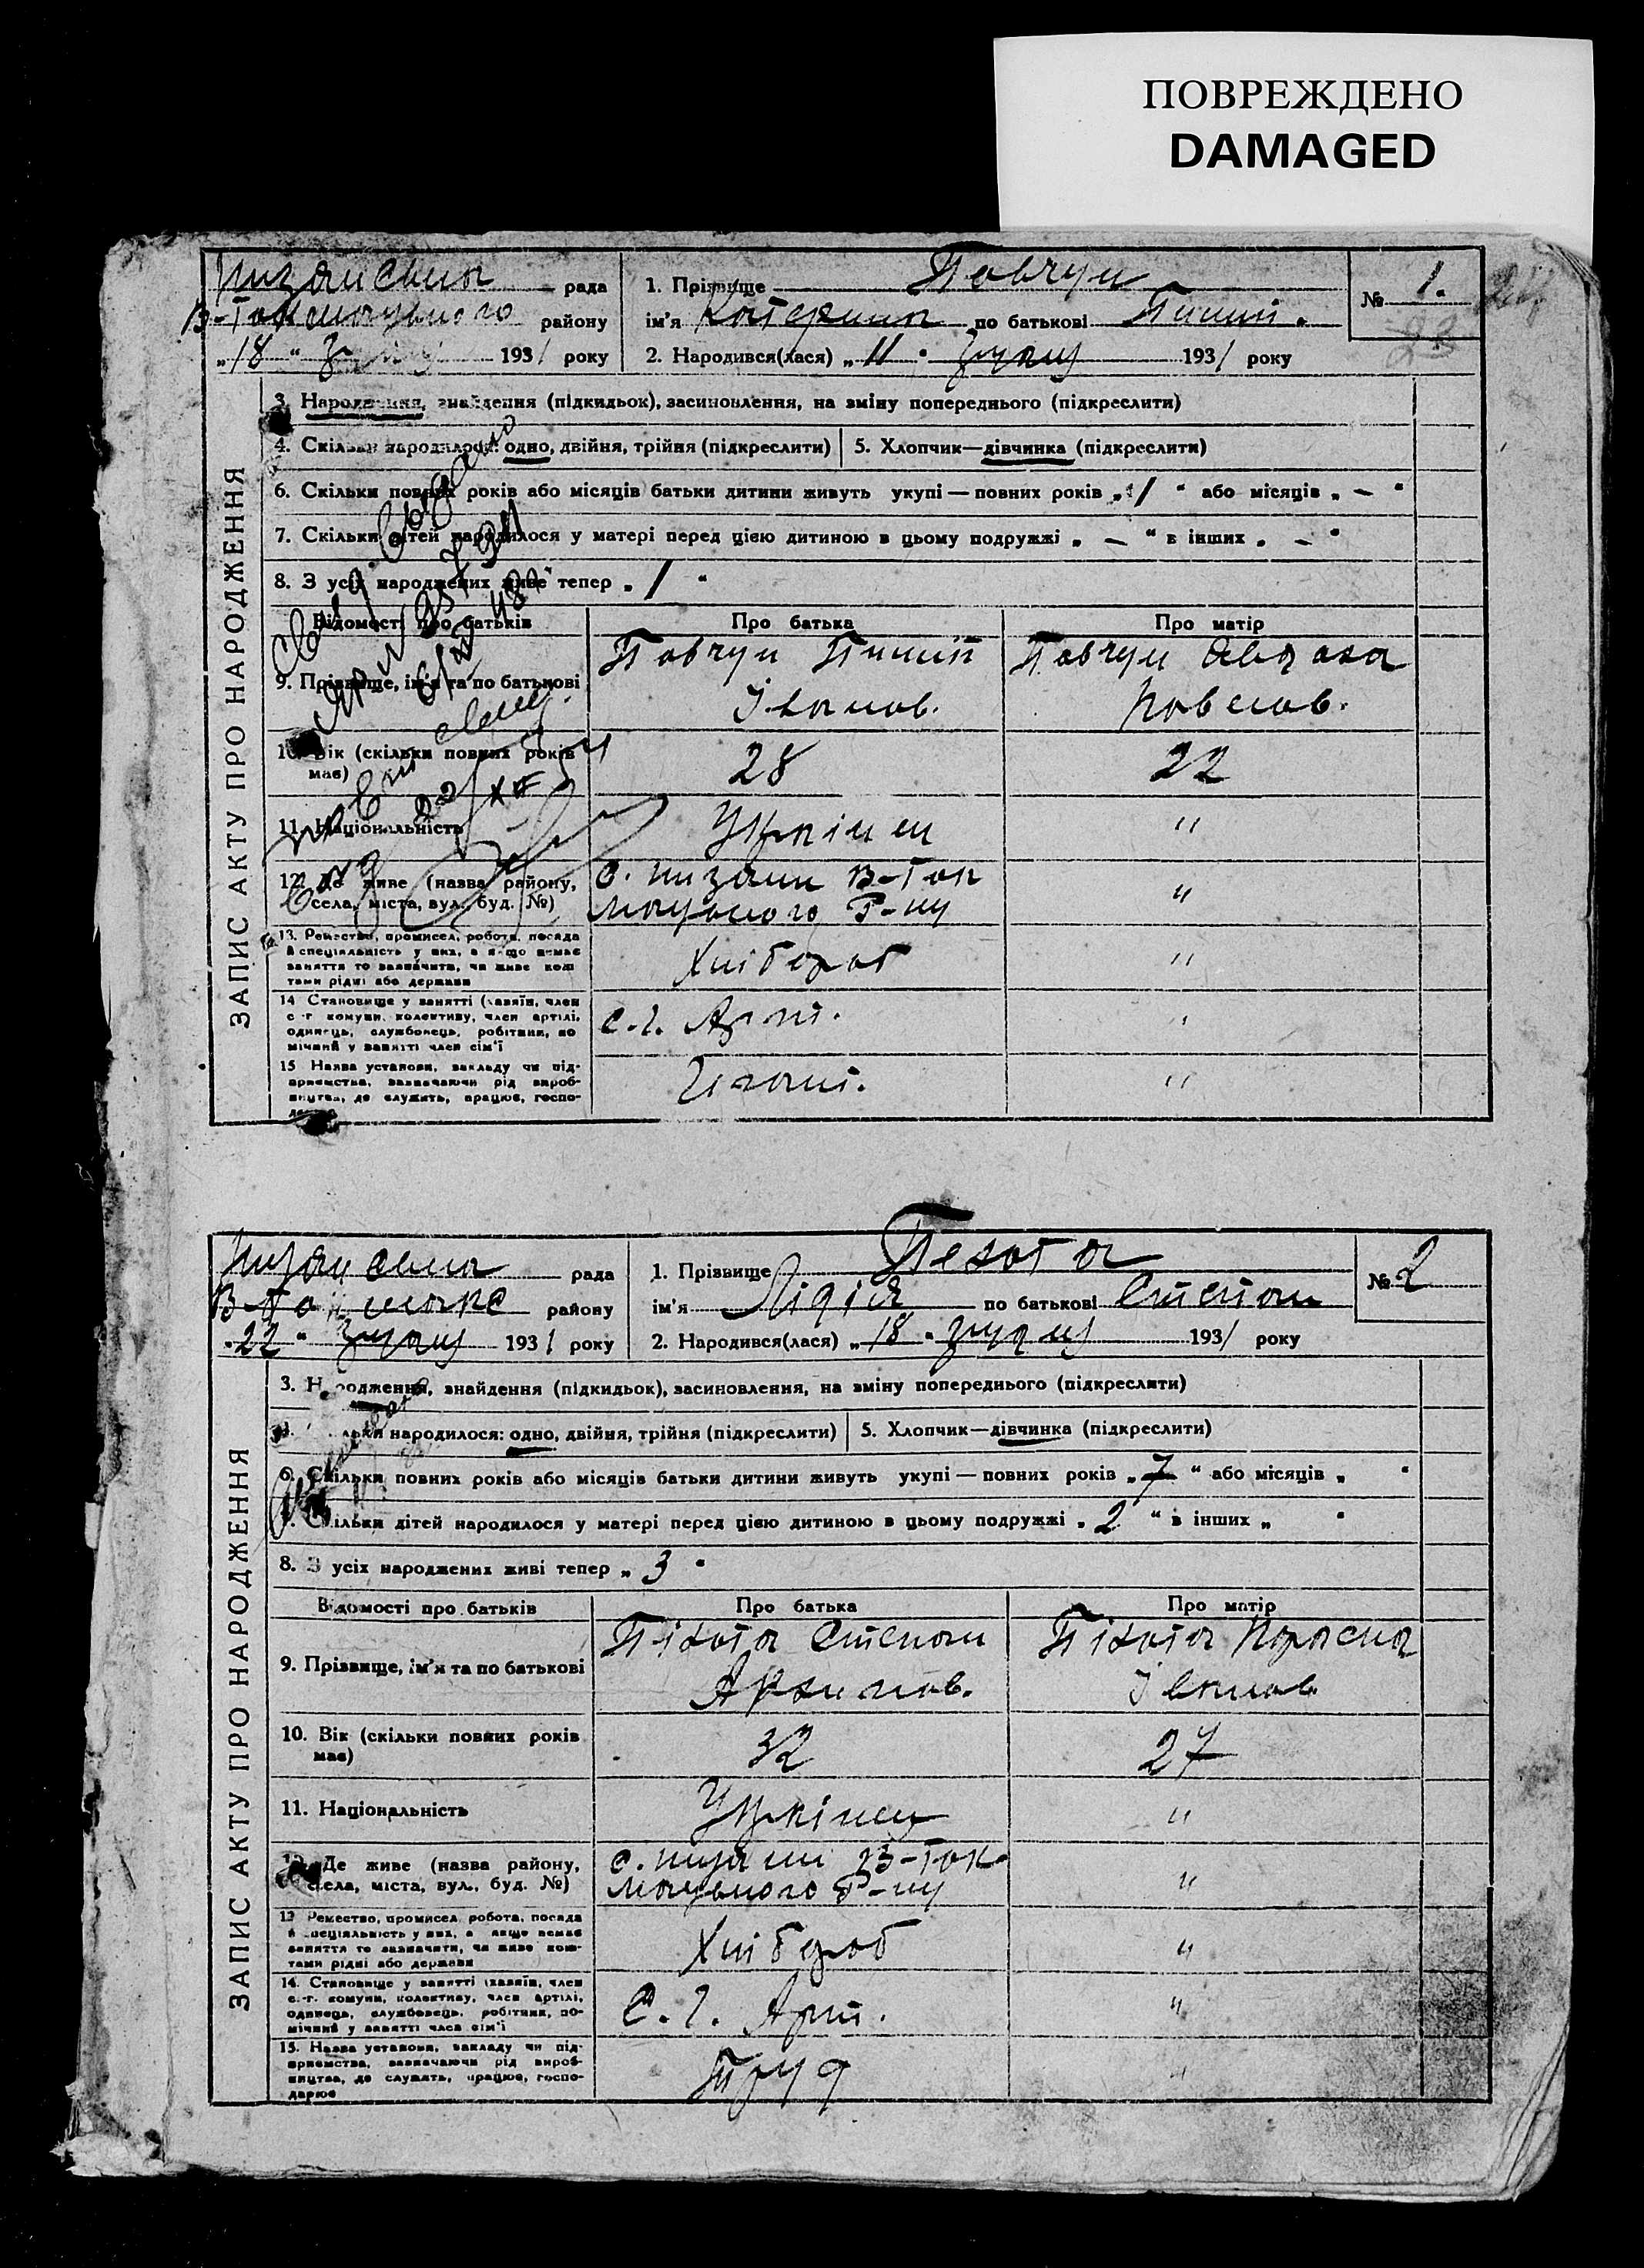 ПОВРЕЖДЕНО
DAMAGED
рада
В-Токмацького району
„18 “ 1931 року
1. Прізвище Повчун
ім'я Катерина по батькові Пилип.
2. Народився(лася) „11 “ грудня 1931 року
№ 1.
23
ЗАПИС АКТУ ПРО НАРОДЖЕННЯ
3. Народження, знайдення (підкидьок), засиновлення, на зміну попереднього (підкреслити)
4. Скільки народилося: одно, двійня, трійня (підкреслити) 5. Хлопчик—дівчинка (підкреслити)
6. Скільки повних років або місяців батьки дитини живуть укупі — повних років „1 “ або місяців „ — “
7. Скільки дітей народилося у матері перед цією дитиною в цьому подружжі „ — “ в інших „ — “
8. З усіх народжених живе тепер „ 1 “
Відомості про батьків Про батька Про матір
9. Прізвище, ім'я та по батькові Повчун Пилип Іванов. Повчун Павлов.
10. Вік (скільки повних років має) 28 22
11. Національність Україн "
12. Де живе (назва району, села, міста, вул., буд. №) с. В-Токмацького Р-ну "
13. Ремество, промисел, робота, посада й спеціяльність у них, а якщо немає заняття то зазначити, чи живе коштами рідні або держави Хлібороб "
14 Становище у занятті (хазяїн, член с.-г комуни, колективу, член артілі, одинець, службовець, робітник, помічний у занятті член сім'ї с.г. Арт. "
15 Назва установи, закладу чи підприємства, зазначаючи рід виробництва, де служить, працює, господарює "
рада
В-Токмакс району
„22 “ грудня 1931 року
1. Прізвище Пехота
ім'я Лідія по батькові Степан
2. Народився(лася) „18 “ грудня 1931 року
№ 2
ЗАПИС АКТУ ПРО НАРОДЖЕННЯ
3. Народження, знайдення (підкидьок), засиновлення, на зміну попереднього (підкреслити)
4. Скільки народилося: одно, двійня, трійня (підкреслити) 5. Хлопчик—дівчинка (підкреслити)
6. Скільки повних років або місяців батьки дитини живуть укупі — повних років „ 7 “ або місяців „ “
7. Скільки дітей народилося у матері перед цією дитиною в цьому подружжі „ 2 “ в інших „ “
8. З усіх народжених живі тепер „ 3 “
Відомості про батьків Про батька Про матір
9. Прізвище, ім'я та по батькові Піхота Степан Архипов. Піхота Параска Іванов
10. Вік (скільки повних років має) 32 27
11. Національність Українец "
12. Де живе (назва району, села, міста, вул., буд. №) с. В-Токмацького Р-ну "
13 Ремество, промисел, робота, посада й спеціяльність у них, а якщо немає заняття то зазначити, чи живе коштами рідні або держави Хлібороб "
14. Становище у занятті (хазяїн, член с.-г. комуни, колективу, член артілі, одинець, службовець, робітник, помічний у занятті член сім'ї С.Г. Арт. "
15. Назва установи, закладу чи підприємства, зазначаючи рід виробництва, де служить, працює, господарює Труд "